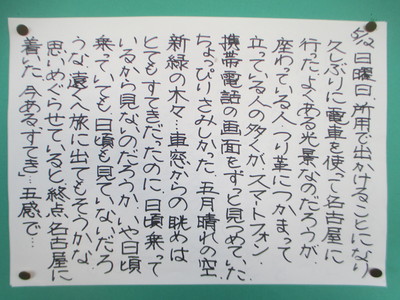 5/12 日曜日、所用で出かけることになり
久しぶりに電車を使って名古屋に
行った。よくある光景なのだろうが、
座わっている人、つり革につかまって
立っている人の多くが、スマートフォン
携帯電話の画面をずっと見つめていた。
ちょっぴりさみしかった。五月晴れの空
新緑の木々…車窓からの眺めは
とてもすてきだったのに、日頃乗って
いるから見ないのだろうか、いや日頃
乗っていても、日頃も見ていないだろ
うな、遠くへ旅に出てもそうかな…
思いめぐらせていると終点、名古屋に
着いた。今ある"すてき"五感で…